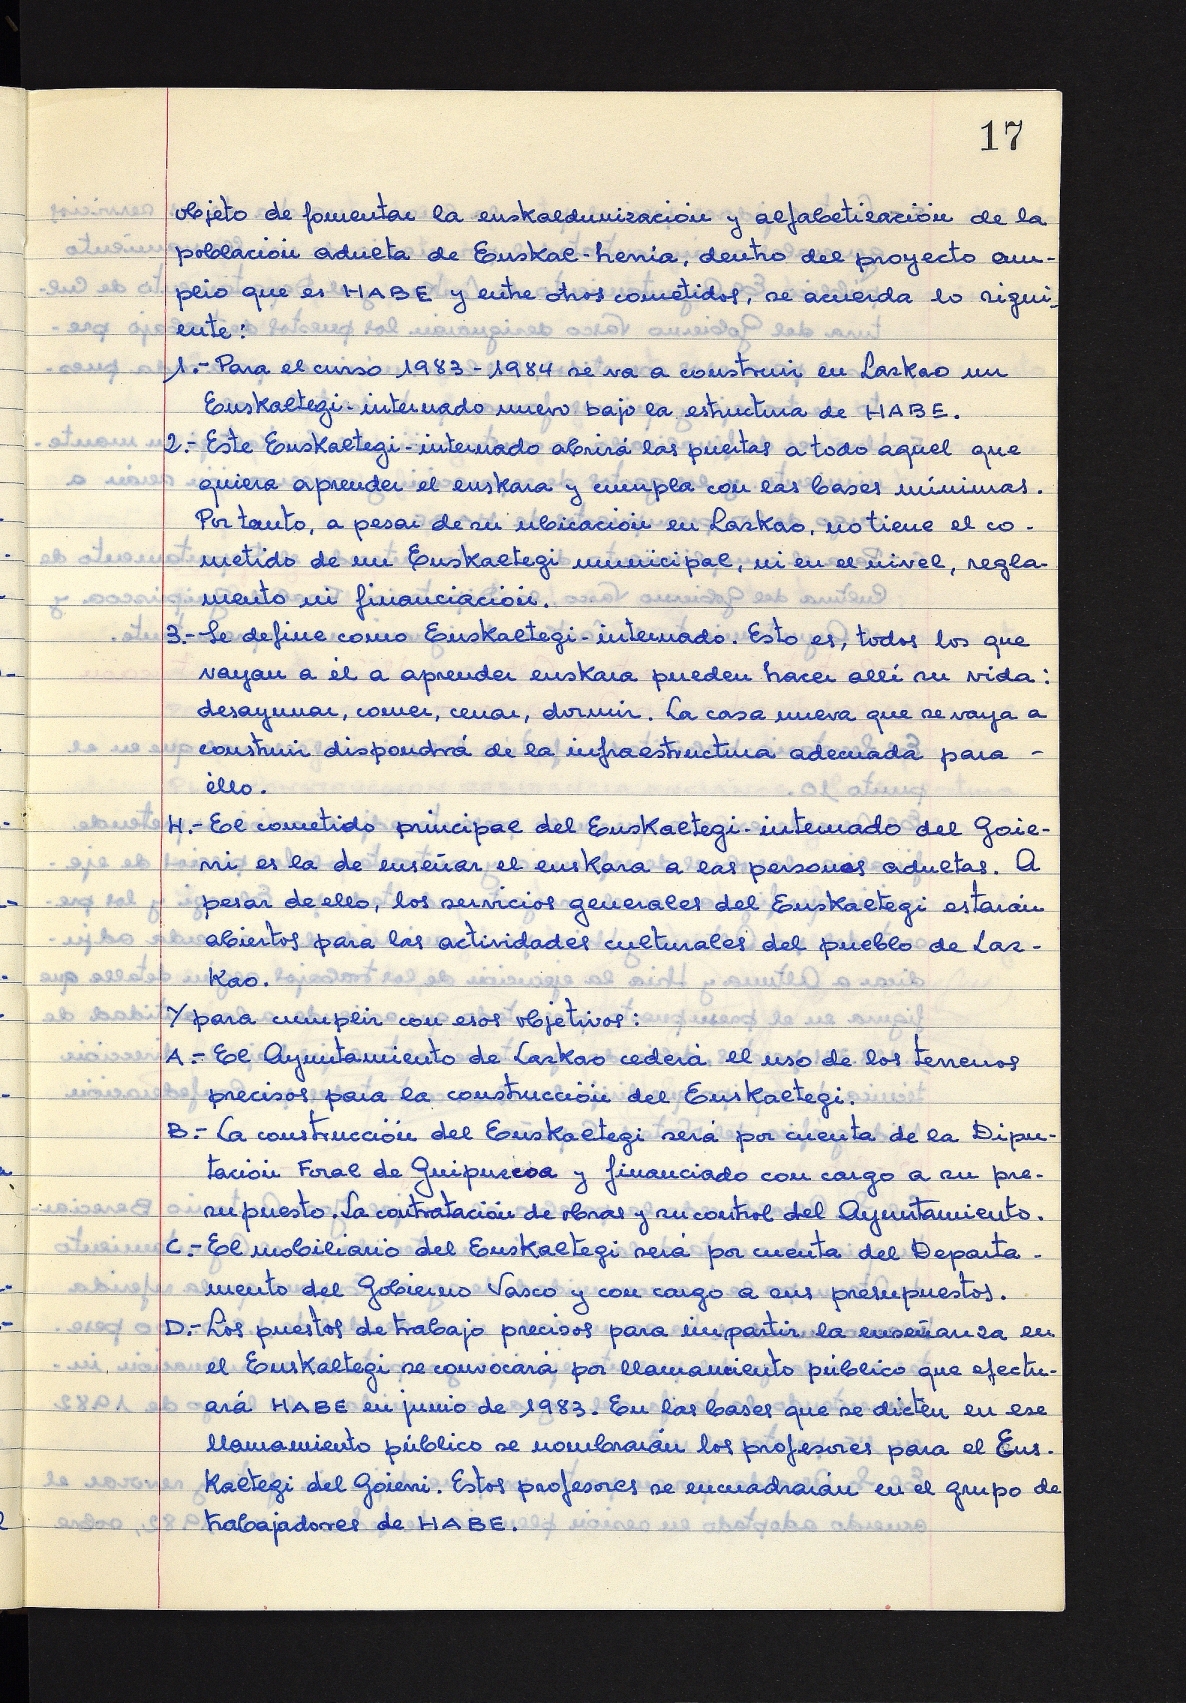 17
objeto de fomentar la euskaldunización y alfabetización de la
población adulta de Euskal-herria, dentro del proyecto am-
plio que es HABE y entre otros cometidos, se acuerda lo sigui-
ente:
1.- Para el curso 1983-1984 se va a construir en Lazkao un
Euskaltegi-internado nuevo bajo la estructura de HABE.
2.- Este Euskaltegi-internado abrirá las puertas a todo aquel que
quiera aprender el euskara y cumpla con las bases mínimas.
Por tanto, a pesar de su ubicación en Lazkao, no tiene el co-
metido de un Euskaltegi municipal, ni en el nivel, regla-
mento ni financiación.
3.- Se define como Euskaltegi-internado. Esto es, todos los que
vayan a él a aprender euskara pueden hacer allí su vida:
desayunar, comer, cenar, dormir. La casa nueva que se vaya a
construir dispondrá de la infraestructura adecuada para -
ello.
4.- El cometido principal del Euskaltegi-internado del Goie-
rri es la de enseñar el euskara a las personas adultas. A
pesar de ello, los servicios generales del Euskaltegi estarán
abiertos para las actividades culturales del pueblo de Laz-
kao.
Y para cumplir con esos objetivos:
A.- El Ayuntamiento de Lazkao cederá el uso de los terrenos
precisos para la construcción del Euskaltegi.
B.- La construcción del Euskaltegi será por cuenta de la Dipu-
tación Foral de Guipuzcoa y financiado con cargo a su pre-
supuesto. La contratación de obras y su control del Ayuntamiento.
C.- El mobiliario del Euskaltegi será por cuenta del Departa-
mento del Gobierno Vasco y con cargo a sus presupuestos.
D.- Los puestos de trabajo precisos para impartir la enseñanza en
el Euskaltegi se convocará por llamamiento público que efectu-
ará HABE en junio de 1983. En las bases que se dicten en ese
llamamiento público se nombrarán los profesores para el Eus-
kaltegi del Goierri. Estos profesores se encuadrarán en el grupo de
trabajadores de HABE.